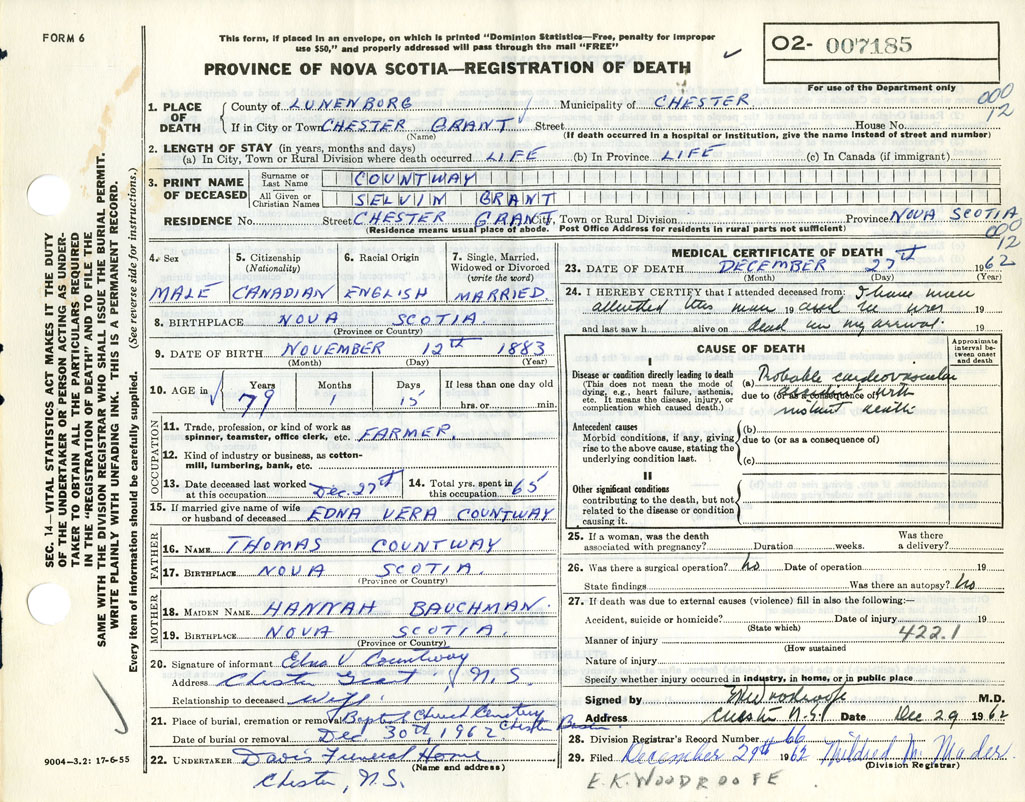 FORM 6
This form, if placed in an envelope, on which is printed "Dominion Statistics—Free, penalty for improper
use $50," and properly addressed will pass through the mail "FREE"
O2- 007185
PROVINCE OF NOVA SCOTIA—REGISTRATION OF DEATH
For use of the Department only
000
12
1. PLACE OF DEATH
County of LUNENBURG Municipality of CHESTER
If in City or Town CHESTER GRANT Street House No.
(Name) (If death occurred in a hospital or institution, give the name instead of street and number)
2. LENGTH OF STAY (in years, months and days)
(a) In City, Town or Rural Division where death occurred LIFE (b) In Province LIFE (c) In Canada (if immigrant)
3. PRINT NAME OF DECEASED
Surname or Last Name COUNTWAY
All Given or Christian Names SELVIN GRANT
RESIDENCE No. Street CHESTER GRANT City, Town or Rural Division Province NOVA SCOTIA
(Residence means usual place of abode. Post Office Address for residents in rural parts not sufficient)
000
12
4. Sex MALE
5. Citizenship (Nationality) CANADIAN
6. Racial Origin ENGLISH
7. Single, Married, Widowed or Divorced (write the word) MARRIED
8. BIRTHPLACE NOVA SCOTIA
(Province or Country)
9. DATE OF BIRTH NOVEMBER 12th 1883
(Month) (Day) (Year)
10. AGE in Years Months Days If less than one day old
79 1 15 hrs. or min.
OCCUPATION
11. Trade, profession, or kind of work as
spinner, teamster, office clerk, etc. FARMER.
12. Kind of industry or business, as cotton-
mill, lumbering, bank, etc.
13. Date deceased last worked at this occupation Dec. 27th 14. Total yrs. spent in this occupation 65
15. If married give name of wife or husband of deceased EDNA VERA COUNTWAY
FATHER
16. NAME THOMAS COUNTWAY
17. BIRTHPLACE NOVA SCOTIA.
(Province or Country)
MOTHER
18. MAIDEN NAME HANNAH BAUCHMAN.
19. BIRTHPLACE NOVA SCOTIA.
(Province or Country)
20. Signature of informant Edna V Countway
Address Chester Grant, N.S.
Relationship to deceased Wife
21. Place of burial, cremation or removal Baptist Church Cemetery Chester Basin
Date of burial or removal Dec 30th, 1962
22. UNDERTAKER Davis Funeral Home
(Name and address)
Chester, N.S.
MEDICAL CERTIFICATE OF DEATH
23. DATE OF DEATH DECEMBER 27th 1962
(Month) (Day) (Year)
24. I HEREBY CERTIFY that I attended deceased from: I have
attended this man 19 and he was 19
and last saw h alive on dead on my arrival. 19
CAUSE OF DEATH
Approximate interval be-tween onset and death
I
Disease or condition directly leading to death
(This does not mean the mode of
dying, e.g., heart failure, asthenia,
etc. It means the disease, injury, or
complication which caused death.)
(a) Probable cardiovascular
due to (or as a consequence of) with
instant death
Antecedent causes
Morbid conditions, if any, giving
rise to the above cause, stating the
underlying condition last.
(b)
due to (or as a consequence of)
(c)
II
Other significant conditions
contributing to the death, but not
related to the disease or condition
causing it.
25. If a woman, was the death associated with pregnancy? Duration weeks. Was there a delivery?
26. Was there a surgical operation? No Date of operation 19
State findings Was there an autopsy? No
27. If death was due to external causes (violence) fill in also the following:—
Accident, suicide or homicide? Date of injury 19
(State which)
422.1
Manner of injury
(How sustained
Nature of injury
Specify whether injury occurred in industry, in home, or in public place
Signed by EKWoodroofe M.D.
Address Chester N.S. Date Dec 29 1962
28. Division Registrar's Record Number 66
29. Filed December 29th 1962 Mildred M. Mader
(Division Registrar)
E.K. WOODROOFE
9004—3.2: 17-6-55
SEC. 14—VITAL STATISTICS ACT MAKES IT THE DUTY
OF THE UNDERTAKER OR PERSON ACTING AS UNDER-
TAKER TO OBTAIN ALL THE PARTICULARS REQUIRED
IN THE "REGISTRATION OF DEATH" AND TO FILE THE
SAME WITH THE DIVISION REGISTRAR WHO SHALL ISSUE THE BURIAL PERMIT.
WRITE PLAINLY WITH UNFADING INK. THIS IS A PERMANENT RECORD.
Every item of information should be carefully supplied. (See reverse side for instructions.)